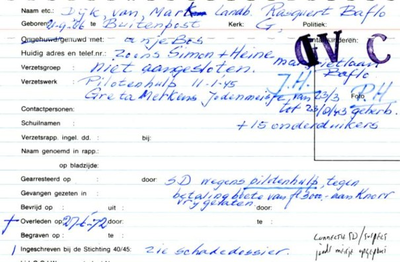 Naam etc.: Dijk van Mark Landb. Rasquert Baflo
Geboren: te Buitenpost Kerk: G Politiek:
Ongehuwd/gehuwd met: Antje Bos kinderen:
Huidig adres en telef.nr.: Zoons Simon + Heine
Verzetsgroep: niet aangesloten. Baflo
Verzetswerk: Pilotenhulp 11-1-45 J.H. Foto R.H
Greta Merkens Jodenmeisje van 23/3
Contactpersonen: tot 23/6/43 geherb.
Schuilnamen: +15 onderduikers
Verzetsrapp. ingel. dd.: bij:
Naam genoemd in rapp.:
op bladzijde:
Gearresteerd op: door: S.D wegens pilotenhulp, tegen
Gevangen gezeten in: betaling boete van f 300,- aan Knorr
Bevrijd op: uit: vrijgelaten
+ Overleden op 27-6-72 door: te:
Begraven op: te:
Ingeschreven bij de Stichting 40/45: zie schadedossier.
OVC